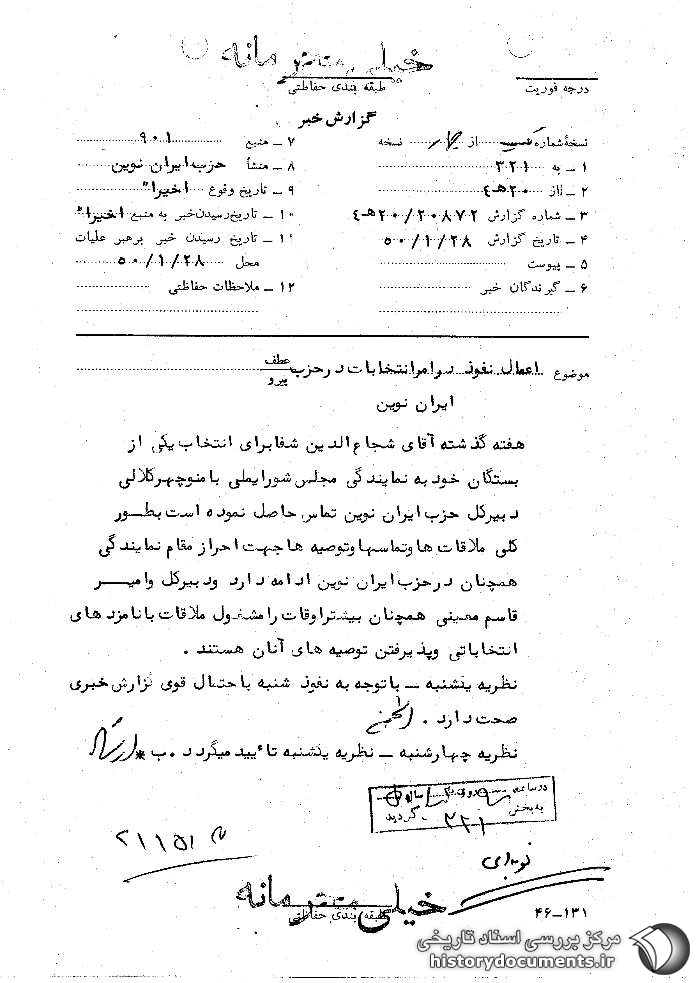 خیلی محرمانه
طبقه بندی حفاظتی
درجه فوریت
گزارش خبر
نسخهٔ شماره از نسخه
۱ – به ۳۲۱
۲ – از ۲۰ ه‍ ٤
۳ – شماره گزارش ۲۰۸۷۲/۲۰ ه‍ ٤
۴ – تاریخ گزارش ۵۰/۱/۲۸
۵ – پیوست
۶ – گیرندگان خبر
۷ – منبع ۹۰۱
۸ – منشأ حزب ایران نوین
۹ – تاریخ وقوع اخیراً
۱۰ – تاریخ رسیدن خبر به منبع اخیراً
۱۱ – تاریخ رسیدن خبر برهبر عملیات
محل ۵۰/۱/۲۸
۱۲ – ملاحظات حفاظتی
موضوع اعمال نفوذ در امر انتخابات در حزب
عطف
پیرو
ایران نوین
هفته گذشته آقای شجاع الدین شفا برای انتخاب یکی از
بستگان خود به نمایندگی مجلس شورایملی با منوچهر کلالی
دبیرکل حزب ایران نوین تماس حاصل نموده است بطور
کلی ملاقات ها و تماسها و توصیه ها جهت احراز مقام نمایندگی
همچنان در حزب ایران نوین ادامه دارد و دبیرکل و امیر
قاسم معینی همچنان بیشتر اوقات را مشغول ملاقات با نامزدهای
انتخاباتی و پذیرفتن توصیه های آنان هستند .
نظریه یکشنبه – با توجه به نفوذ شنبه باحتمال قوی گزارش خبری
صحت دارد .
نظریه چهارشنبه – نظریه یکشنبه تائید میگردد . ب *
در ساعت روز
به بخش ۳۲۱ گردید
۲۱۱۵۱
خیلی محرمانه
طبقه بندی حفاظتی
۴۶–۱۳۱
مرکز بررسی اسناد تاریخی
historydocuments.ir